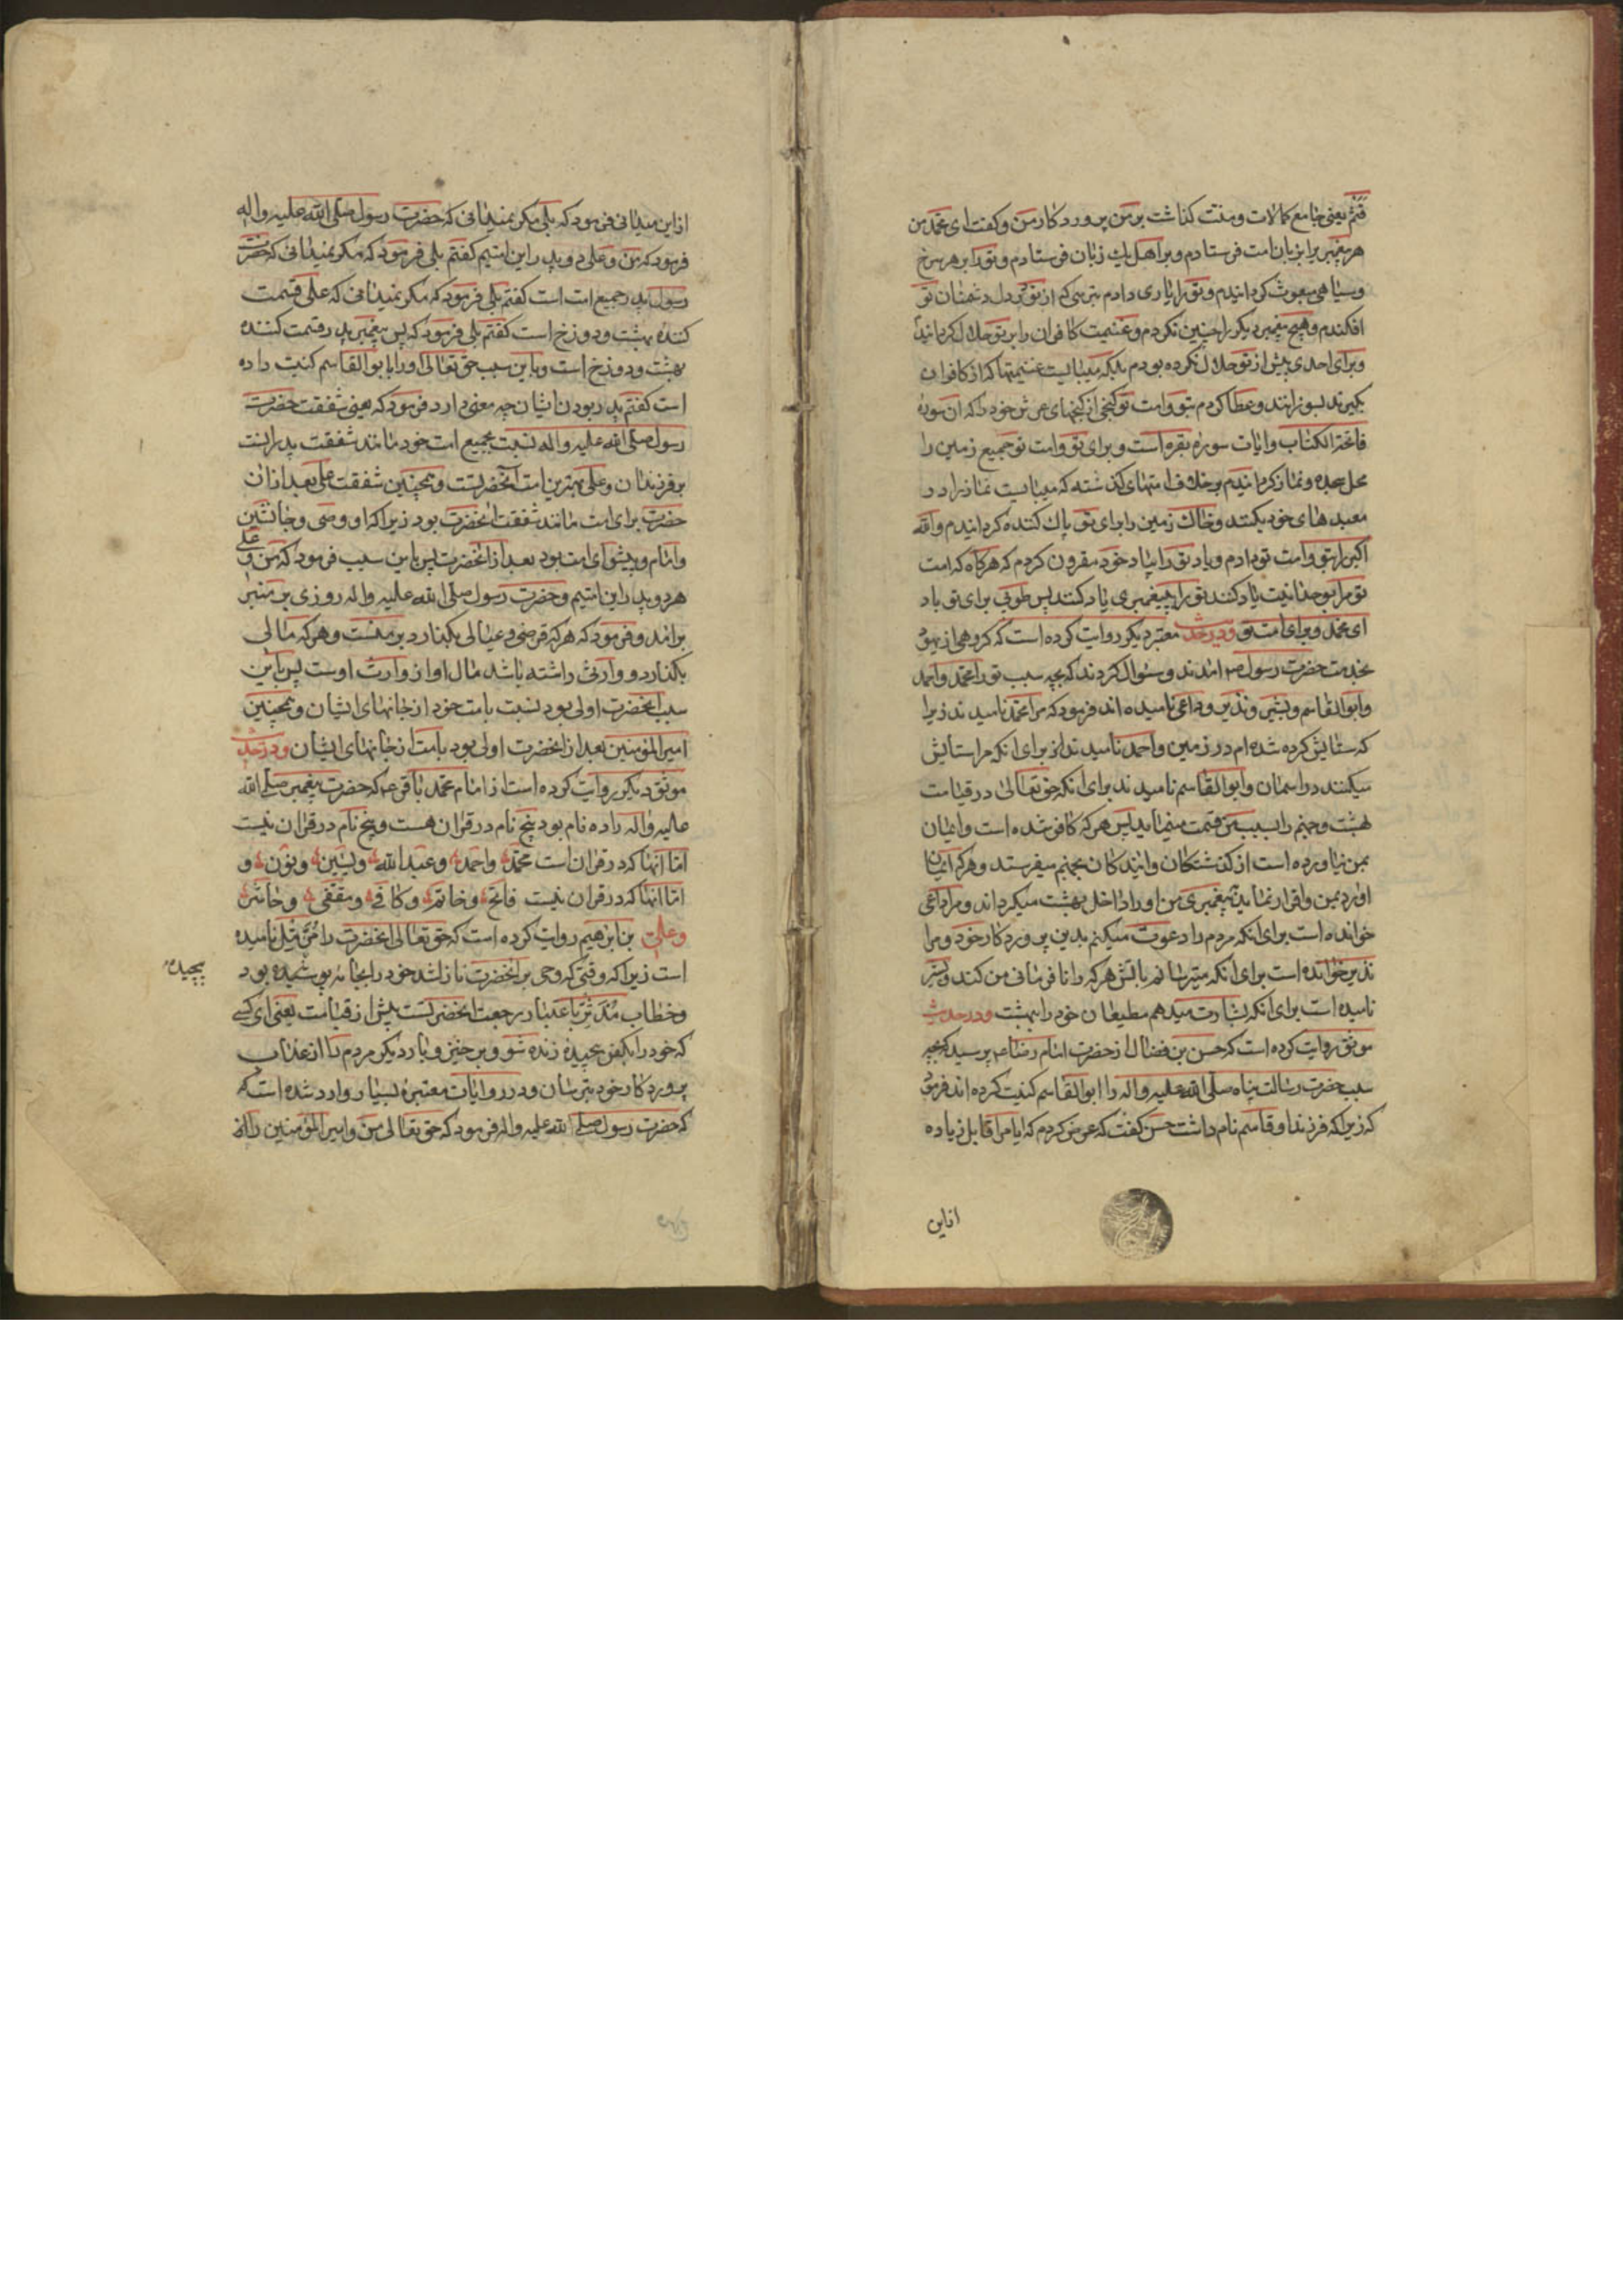 قثم یعنی جامع کمالات و منت گذاشت بر من پروردکار من و کفت ای محمد من
هر پیغمبر را بزبان امت فرستادم و بر اهل یك زبان فرستادم و تو را بر هر سرخ
و سیاهی مبعوث کردانیدم و تو را یاری دادم بترسی که از تو در دل دشمنان تو
افکندم و هیچ پیغمبر دیکر را چنین نکردم و غنیمت کافران را بر تو حلال کردانیدم
و برای احدی پیش از تو حلال نکرده بودم بلکه میبایست غنیمتها که از کافران
بکیرند بسوزانند و عطا کردم بتو و امت تو کنجی از کنجهای عرش خود را که ان سوره
فاتحة الکتاب و ایات سوره بقره است و برای تو و امت تو جمیع زمین را
محل سجده و نماز کردانیدم بر خلاف امتهای کذشته که میبایست نماز را در
معبدهای خود بکنند و خاك زمین را برای تو پاك کننده کردانیدم و الله
اکبر را بتو و امت تو دادم و یاد تو را بیاد خود مقرون کردم که هرکاه که امت
تو مرا بوحدانیت یاد کنند تو را به پیغمبری یاد کنند پس طوبی برای تو باد
ای محمد و برای امت تو و در حدیث معتبر دیکر روایت کرده است که کروهی از یهود
بخدمت حضرت رسول ص امدند و سئوال کردند که بچه سبب تو را محمد و احمد
و ابوالقاسم و بشیر و نذیر و داعی نامیده اند فرمود که مرا محمد نامیدند زیرا
که ستایش کرده شده ام در زمین و احمد نامیدند از برای انکه مرا ستایش
میکنند در اسمان و ابوالقاسم نامیدند برای انکه حق تعالی در قیامت
بهشت و جهنم را بسبب من قسمت مینماید پس هر که کافر شده است و ایمان
بمن نیاورده است از کذشتکان و ایندکان بجهنم میفرستد و هر که ایمان
اورد بمن و اقرار نماید به پیغمبری من او را داخل بهشت میکرداند و مرا داعی
خوانده است برای انکه مردم را دعوت میکنم بدین پروردکار خود و مرا
نذیر خوانده است برای انکه میترسانم باتش هر که را نافرمانی من کند و بشیر
نامیده است برای انکه بشارت میدهم مطیعان خود را ببهشت و در حدیث
موثق روایت کرده است که حسن بن فضال از حضرت امام رضا ع پرسید که بچه
سبب حضرت رسالت پناه صلی الله علیه واله را ابوالقاسم کنیت کرده اند فرمود
که زیرا که فرزند او قاسم نام داشت حسن کفت که عرض کردم که ایا مرا قابل زیاده
از این
از این میدانی فرمود که بلی مکر نمیدانی که حضرت رسول صلی الله علیه واله
فرمود که من و علی دو پدر این امتیم کفتم بلی فرمود که مکر نمیدانی که حضرت
رسول پدر جمیع امت است کفتم بلی فرمود که مکر نمیدانی که علی قسمت
کننده بهشت و دوزخ است کفتم بلی فرمود که پس پیغمبر پدر قسمت کننده
بهشت و دوزخ است و باین سبب حق تعالی او را بابوالقاسم کنیت داده
است کفتم پدر بودن ایشان چه معنی دارد فرمود که یعنی شفقت حضرت
رسول صلی الله علیه واله نسبت بجمیع امت خود مانند شفقت پدرانست
بر فرزندان و علی بهترین امت انحضرتست و همچنین شفقت علی بعد از ان
حضرت برای امت مانند شفقت انحضرت بود زیرا که او وصی و جانشین
و امام و پیشوای امت بود بعد از انحضرت پس باین سبب فرمود که من و علی
هر دو پدر این امتیم و حضرت رسول صلی الله علیه واله روزی بر منبر
برامد و فرمود که هر که قرضی و عیالی بکذارد بر منست و هر که مالی
بکذارد و وارثی داشته باشد مال او از وارث اوست پس باین
سبب انحضرت اولی بود نسبت بامت خود از جانهای ایشان و همچنین
امیر المؤمنین بعد از انحضرت اولی بود بامت از جانهای ایشان و در حدیث
موثق دیکر روایت کرده است از امام محمد باقر ع که حضرت پیغمبر صلی الله
علیه واله را ده نام بود پنج نام در قران هست و پنج نام در قران نیست
اما انها که در قران است محمد و احمد و عبدالله و یسین و نون و
اما انها که در قران نیست فاتح و خاتم و کافی و مقفی و حاشر
و علی بن ابرهیم روایت کرده است که حق تعالی انحضرت را مزمل نامیده
است زیرا که وقتی که وحی بر انحضرت نازل شد خود را بجامه پوشیده بود
پیچیده
و خطاب مدثر باعتبار رجعت انحضرتست پیش از قیامت یعنی ای کسی
که خود را بکفن پیچیده زنده شو و برخیز و بار دیکر مردم را از عذاب
پروردکار خود بترسان و در روایات معتبره بسیار وارد شده است که
که حضرت رسول صلی الله علیه واله فرمود که حق تعالی من و امیر المؤمنین را از